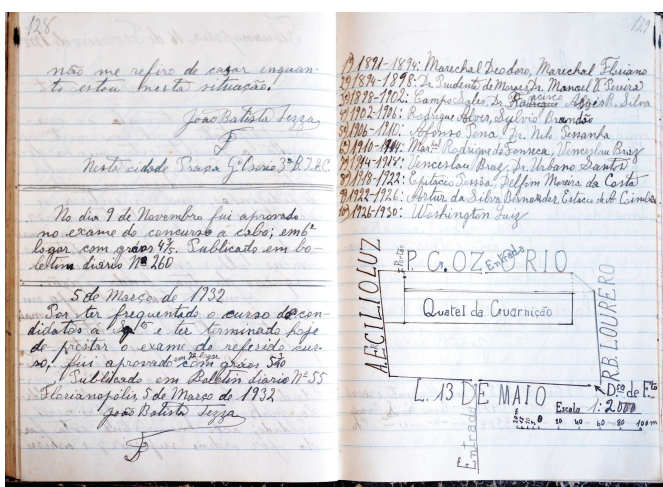 128
não me refiro de casar enquan-
to estou nesta situação.
João Batista Tezza
Nesta cidade Praça Gl. Osorio 3ª B. I. A. C.
No dia 9 de Novembro fui aprovado
no exame do concurso a cabo; em 6º
logar com gráos 4⅗. Publicado em bo-
letim diario Nº 260
5 de Março de 1932
Por ter frequentado o curso de can-
didatos a Sgto e ter terminado hoje
de prestar o exame do referido cur-
so; fui aprovado em logar com gráos
Publicado em Boletim diario Nº 55
Florianopolis, 5 de Março de 1932
João Batista Tezza
129
1º) 1891-1894: Marechal Deodoro, Marechal Floriano
2º) 1894-1898: Dr. Prudente de Moraes, Dr. Manoel V. Pereira
3º) 1898-1902: Campos Sales, Dr. Francisco Assis R. Silva
4º) 1902-1906: Rodrigue Alves, Sylvio Brandão
5º) 1906-1910: Afonso Pena, Dr. Nilo Pessanha
6º) 1910-1914: Marcal Rodrigues da Fonseca, Venceslau Braz
7º) 1914-1918: Venceslau Braz, Dr. Urbano Santos
8º) 1918-1922: Epitacio Pessôa, Delfim Moreira da Costa
9º) 1922-1926: Artur da Silva Bernardes Estacio de A. Coimbra
10º) 1926-1930: Washington Luiz
P. G. OZORIO
Entrada
Portão
A. ECILIO LUZ
Quatel da Guarnição
R. B. LOURERO
L. 13 DE MAIO
Entrada
D.ço de E.to
Escala 1:2000
20 15 10 5 0 20 40 60 80 100 m